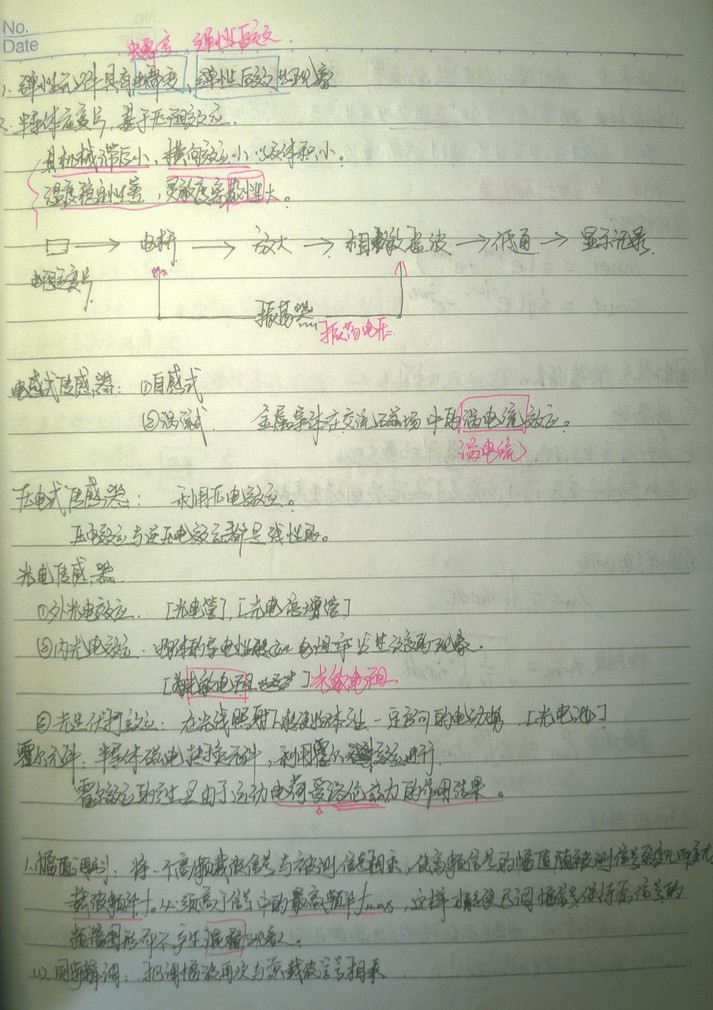 No.
Date
蠕变 弹性后效
1. 弹性元件具有蠕变、弹性后效的现象
2. 半导体应变片,基于压阻效应.
其机械滞后小,横向效应小以及体积小。
温度稳定性差,灵敏度离散性大。
→ 电桥 → 放大 → 相敏检波 → 低通 → 显示记录
电阻应变片
振荡器
振荡电压
电感式传感器: ①自感式
②涡流式 金属导体在交流磁场中的涡电流效应。
(涡电流)
压电式传感器: 利用压电效应。
压电效应与逆压电效应都是线性的。
光电传感器
①外光电效应. [光电管],[光电倍增管]
②内光电效应: 物体的导电性能 电阻率发生改变的现象.
[光敏电阻] 光敏电阻
③光生伏打效应: 在光线照射下能使物体产生一定方向的电动势. [光电池]
霍尔元件: 半导体磁电转换元件,利用霍尔效应进行
霍尔效应的产生是由于运动电荷受洛伦兹力的作用结果。
1. 幅值调制: 将一个高频载波信号与被测信号相乘,使高频信号的幅值随被测信号的变化而变化
载波频率f。必须高于信号中的最高频率fmax,这样才能使已调幅信号保持原信号的
频谱图形而不产生混叠现象。
(1). 同步解调: 把调幅波再次与原载波信号相乘